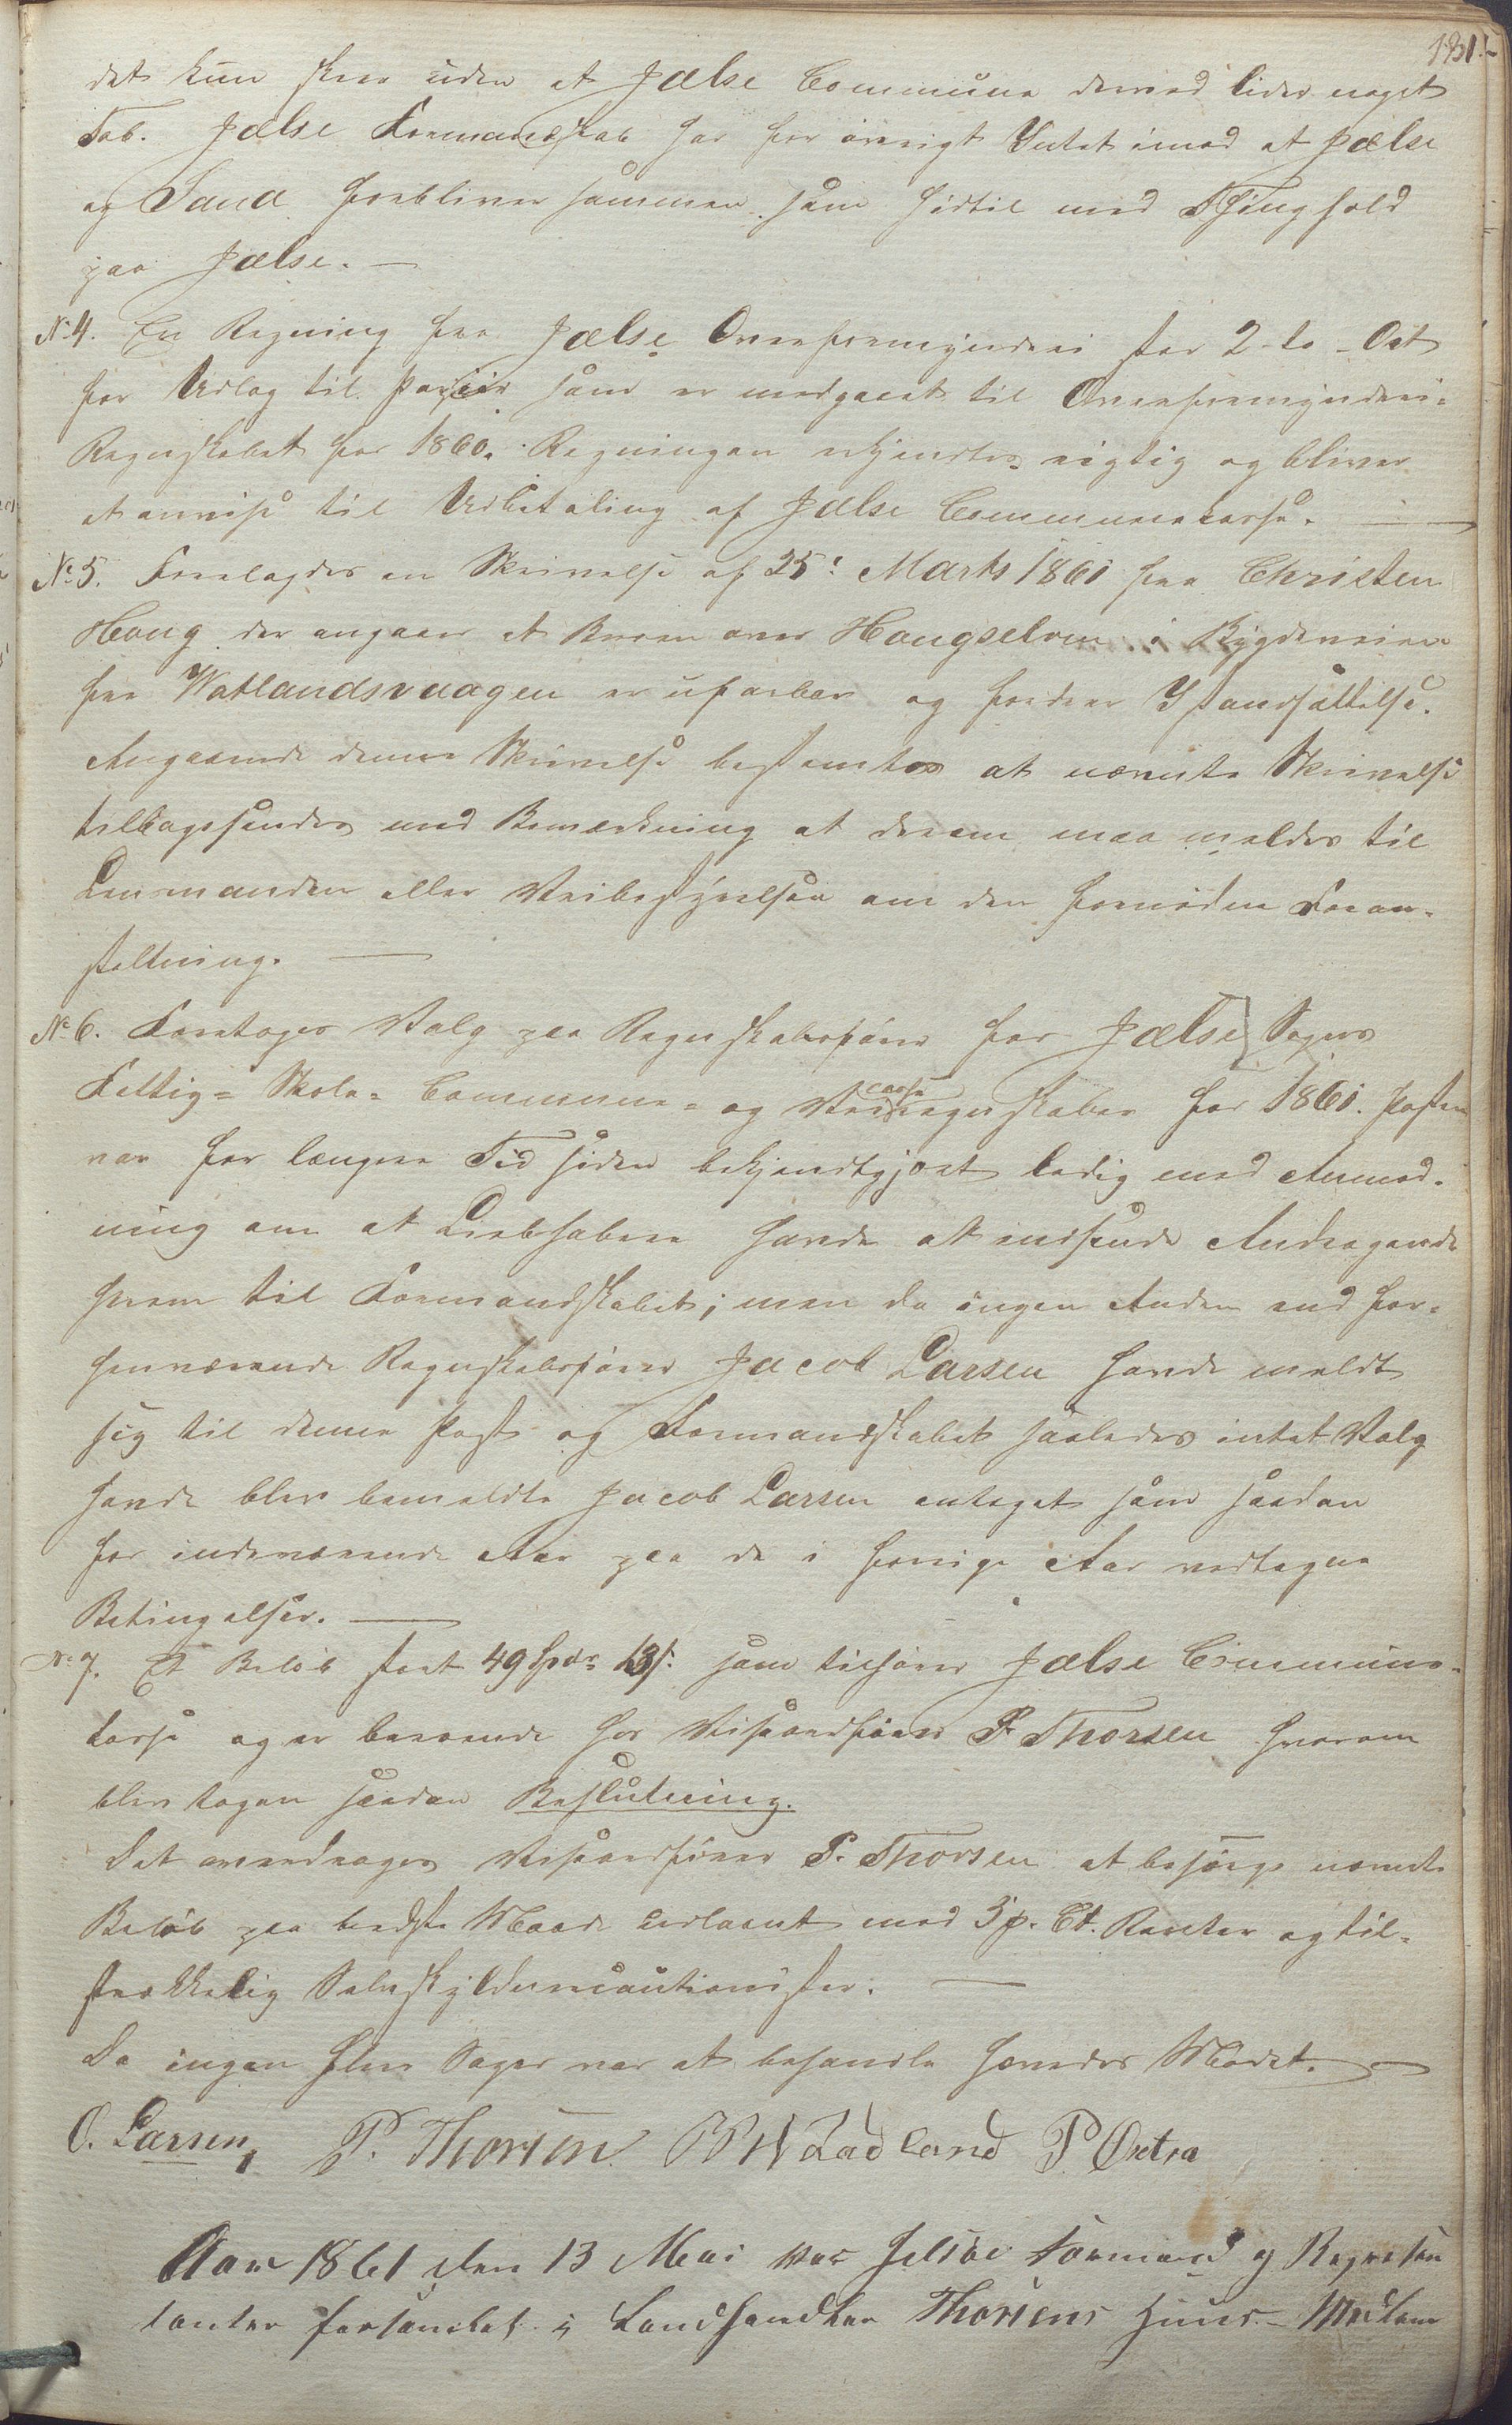 131.
det kun skeer uden at Jælse Commune derved lider noget
Tab. Jælse Formandskab har for øvrigt Intet imod at Jælse
og Sand forbliver sammen som hidtil med Thinghold
paa Jælse. —
No 4. En Regning fra Jælse Overformynderi stor 2 - to - Ort
for Udlag til Papiir som er medgaaet til Overformynderi-
Regnskabet for 1860. Regningen erkjendtes rigtig og bliver
at anvise til Udbetaling af Jælse Communecasse. —
No 5. Forelagdes en Skrivelse af 25. Marts 1861 fra Christen
Houg der angaaer at Broen over Hougselven i Bygdeveien
fra Watlandsvaagen er ufarbar og fordrer Istandsættelse.
Angaaende denne Skrivelse bestemtes at nævnte Skrivelse
tilbagesendes med Bemærkning at derom maa meldes til
Lensmanden eller Veibestyrelsen om den fornødne Foran-
staltning. —
No 6. Foretoges Valg paa Regnskabsfører for Jælse Sogns
Fattig- Skole- Commune- og Veicasseregnskaber for 1861. Posten
var for længere Tid siden bekjendtgjort ledig med Anmod-
ning om at Liebhabere havde at indsende Andragende
herom til Formandskabet; men da ingen Anden end for-
henværende Regnskabsfører Jacob Larsen havde meldt
sig til denne Post og Formandskabet saaledes intet Valg
havde blev bemeldte Jacob Larsen antaget som saadan
for indeværende Aar paa de i forrige Aar vedtagne
Betingelser. —
No 7. Et Beløb stort 49 Spdr 13 s. som tilhører Jælse Commune-
casse og er beroende hos Viseordfører P. Thorsen hvorom
blev tagen saadan Beslutning.
Det overdrages Viseordfører P. Thorsen at besørge nævnte
Beløb paa bedste Maade udlaant mod 5 p. Ct. Renter og til-
strækkelig Selvskyldnercautionister. —
Da ingen flere Sager var at behandle hævedes Mødet. —
O. Larsen, P. Thorsen Ladland P Østra
Aar 1861 den 13 Mai var Jelsøe Formand og Represen
tanter forsamlet i Landhandler Thorsens Huus - Medlem